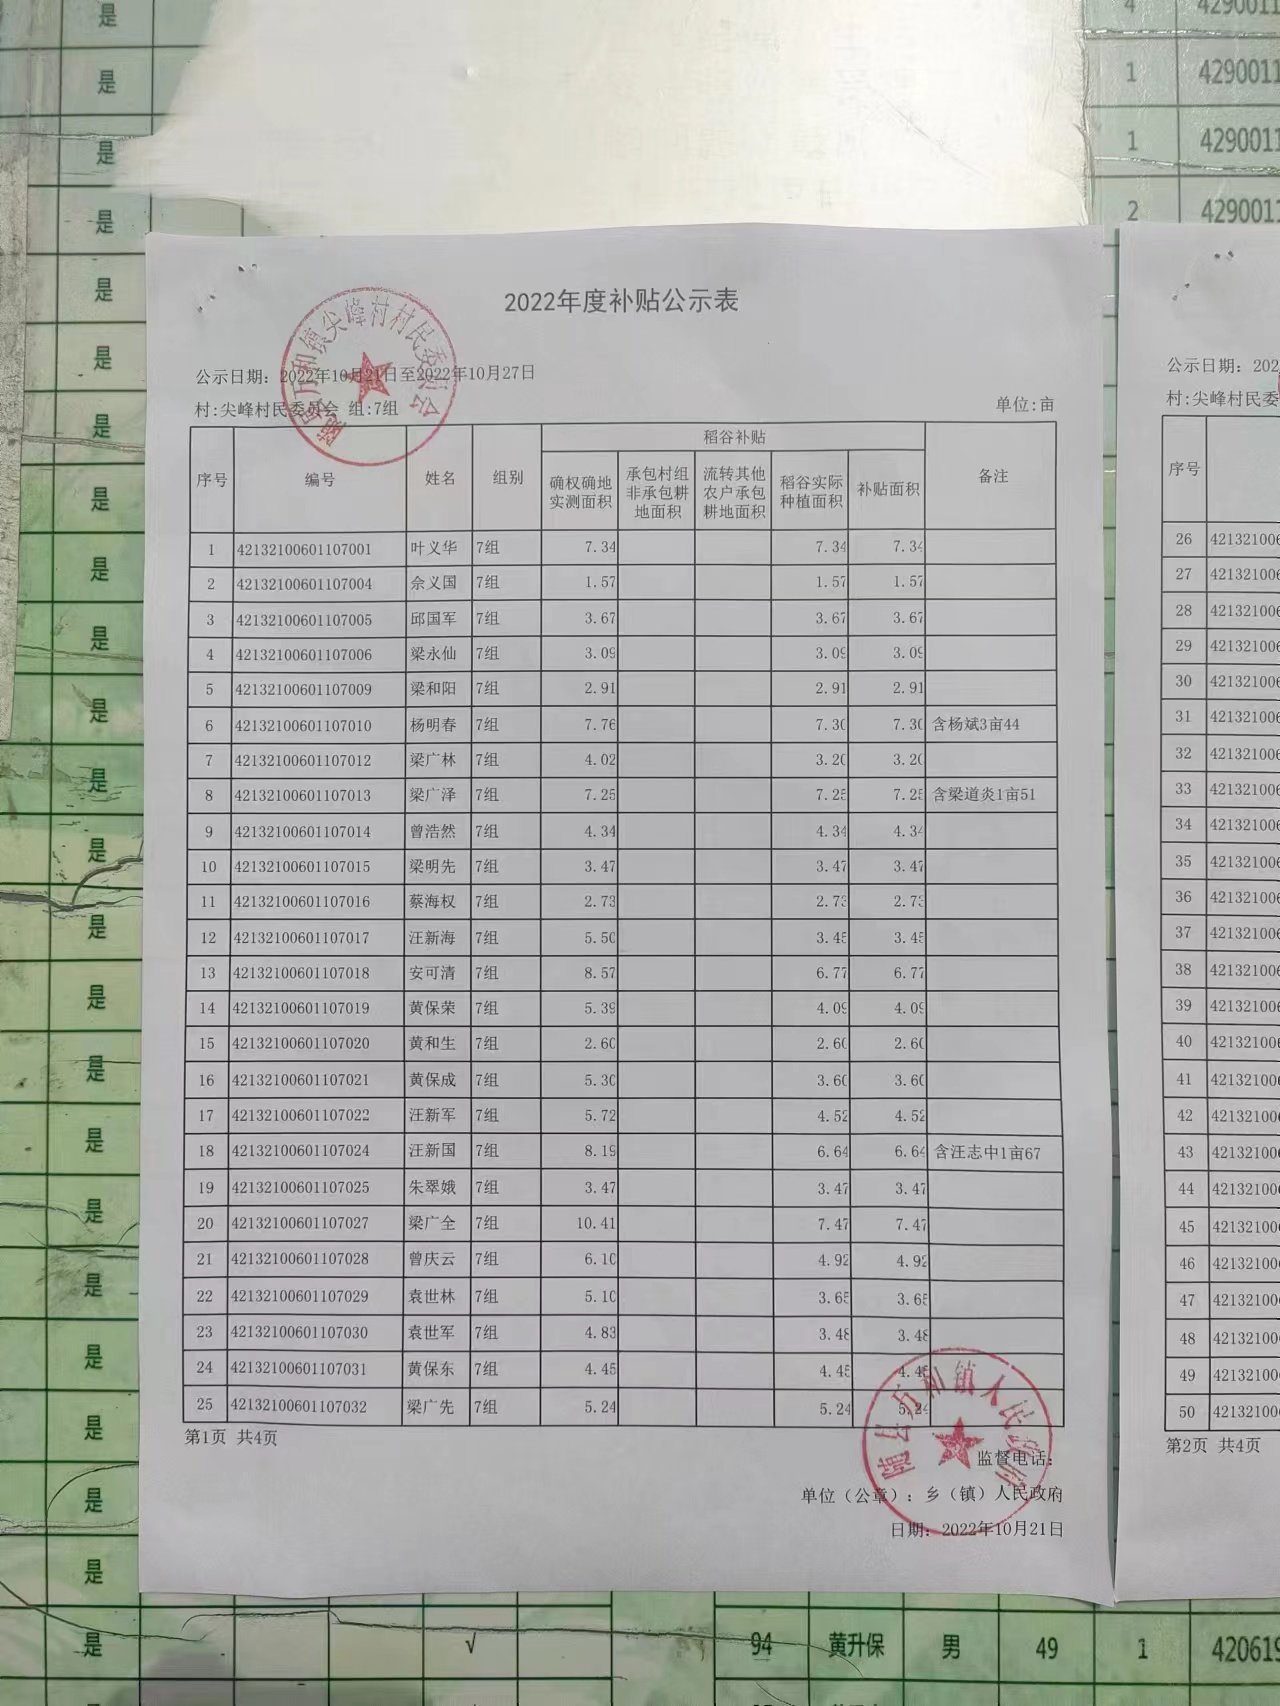 2022年度补贴公示表
随县万和镇尖峰村村民委员会
公示日期：2022年10月21日至2022年10月27日
村:尖峰村民委员会 组:7组
单位:亩
序号 编号 姓名 组别 稻谷补贴 备注
确权确地实测面积 承包村组非承包耕地面积 流转其他农户承包耕地面积 稻谷实际种植面积 补贴面积
1 42132100601107001 叶义华 7组 7.34 7.34 7.34
2 42132100601107004 佘义国 7组 1.57 1.57 1.57
3 42132100601107005 邱国军 7组 3.67 3.67 3.67
4 42132100601107006 梁永仙 7组 3.09 3.09 3.09
5 42132100601107009 梁和阳 7组 2.91 2.91 2.91
6 42132100601107010 杨明春 7组 7.76 7.30 7.30 含杨斌3亩44
7 42132100601107012 梁广林 7组 4.02 3.20 3.20
8 42132100601107013 梁广泽 7组 7.25 7.25 7.25 含梁道炎1亩51
9 42132100601107014 曾浩然 7组 4.34 4.34 4.34
10 42132100601107015 梁明先 7组 3.47 3.47 3.47
11 42132100601107016 蔡海权 7组 2.73 2.73 2.73
12 42132100601107017 汪新海 7组 5.50 3.45 3.45
13 42132100601107018 安可清 7组 8.57 6.77 6.77
14 42132100601107019 黄保荣 7组 5.39 4.09 4.09
15 42132100601107020 黄和生 7组 2.60 2.60 2.60
16 42132100601107021 黄保成 7组 5.30 3.60 3.60
17 42132100601107022 汪新军 7组 5.72 4.52 4.52
18 42132100601107024 汪新国 7组 8.19 6.64 6.64 含汪志中1亩67
19 42132100601107025 朱翠娥 7组 3.47 3.47 3.47
20 42132100601107027 梁广全 7组 10.41 7.47 7.47
21 42132100601107028 曾庆云 7组 6.10 4.92 4.92
22 42132100601107029 袁世林 7组 5.10 3.65 3.65
23 42132100601107030 袁世军 7组 4.83 3.48 3.48
24 42132100601107031 黄保东 7组 4.45 4.45 4.45
25 42132100601107032 梁广先 7组 5.24 5.24 5.24
第1页 共4页
随县万和镇人民政府
监督电话：
单位（公章）：乡（镇）人民政府
日期：2022年10月21日
公示日期：202
村:尖峰村民委
序号
26 421321006
27 421321006
28 421321006
29 421321006
30 421321006
31 421321006
32 421321006
33 421321006
34 421321006
35 421321006
36 421321006
37 421321006
38 421321006
39 421321006
40 421321006
41 421321006
42 421321006
43 421321006
44 421321006
45 421321006
46 421321006
47 421321006
48 421321006
49 421321006
50 421321006
第2页 共4页
是
是
是
是
是
是
是
是
是
是
是
是
是
是
是
是
是
是
是
是
是
是
是
是
4 4290011
1 4290011
1 4290011
2 4290011
√ 94 黄升保 男 49 1 420619